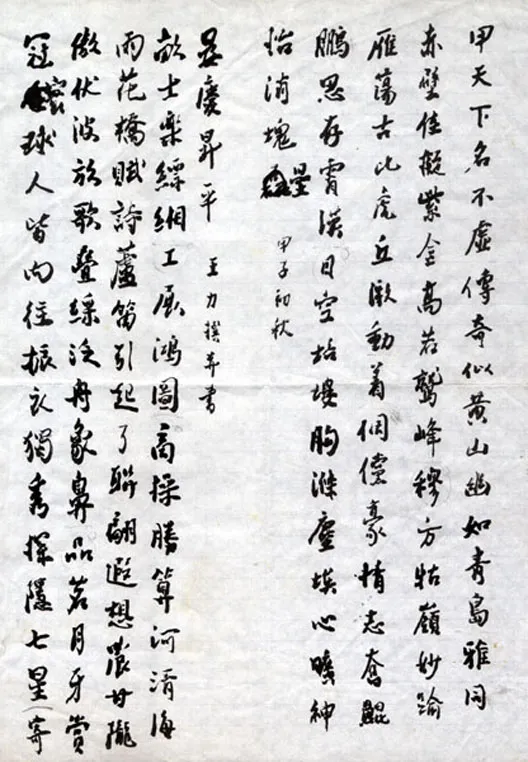 甲天下名不虛傳奇似黃山幽如青島雅同
赤壁佳擬紫金高若鷲峰穆方牯嶺妙逾
雁蕩古比虎丘激動着倜儻豪情志奮鯤
鵬思存霄漢目空培塿胸滌塵埃心曠神
怡消塊壘 甲子初秋
冠寰球人皆向往振衣獨秀探隱七星(寄
傲伏波放歌疊綵泛舟象鼻品茗月牙賞
雨花橋賦詩蘆笛引起了聯翩遐想農甘隴
畝士樂縹緗工展鴻圖商操勝算河清海
晏慶昇平 王力撰并書